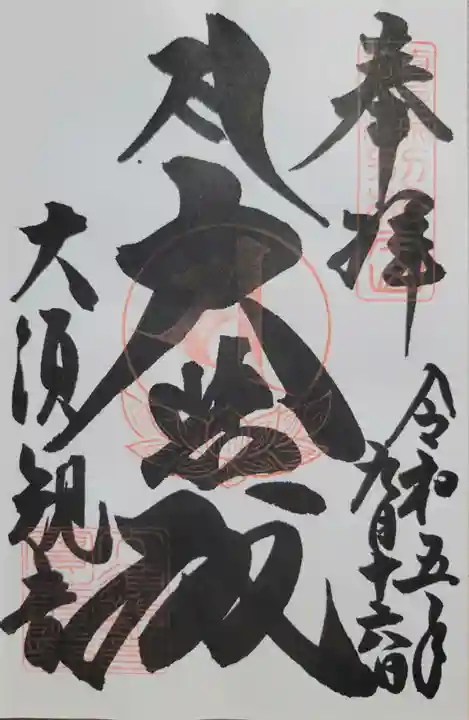 奉拝
令和五年
九月十六日
大悲殿
大須観音